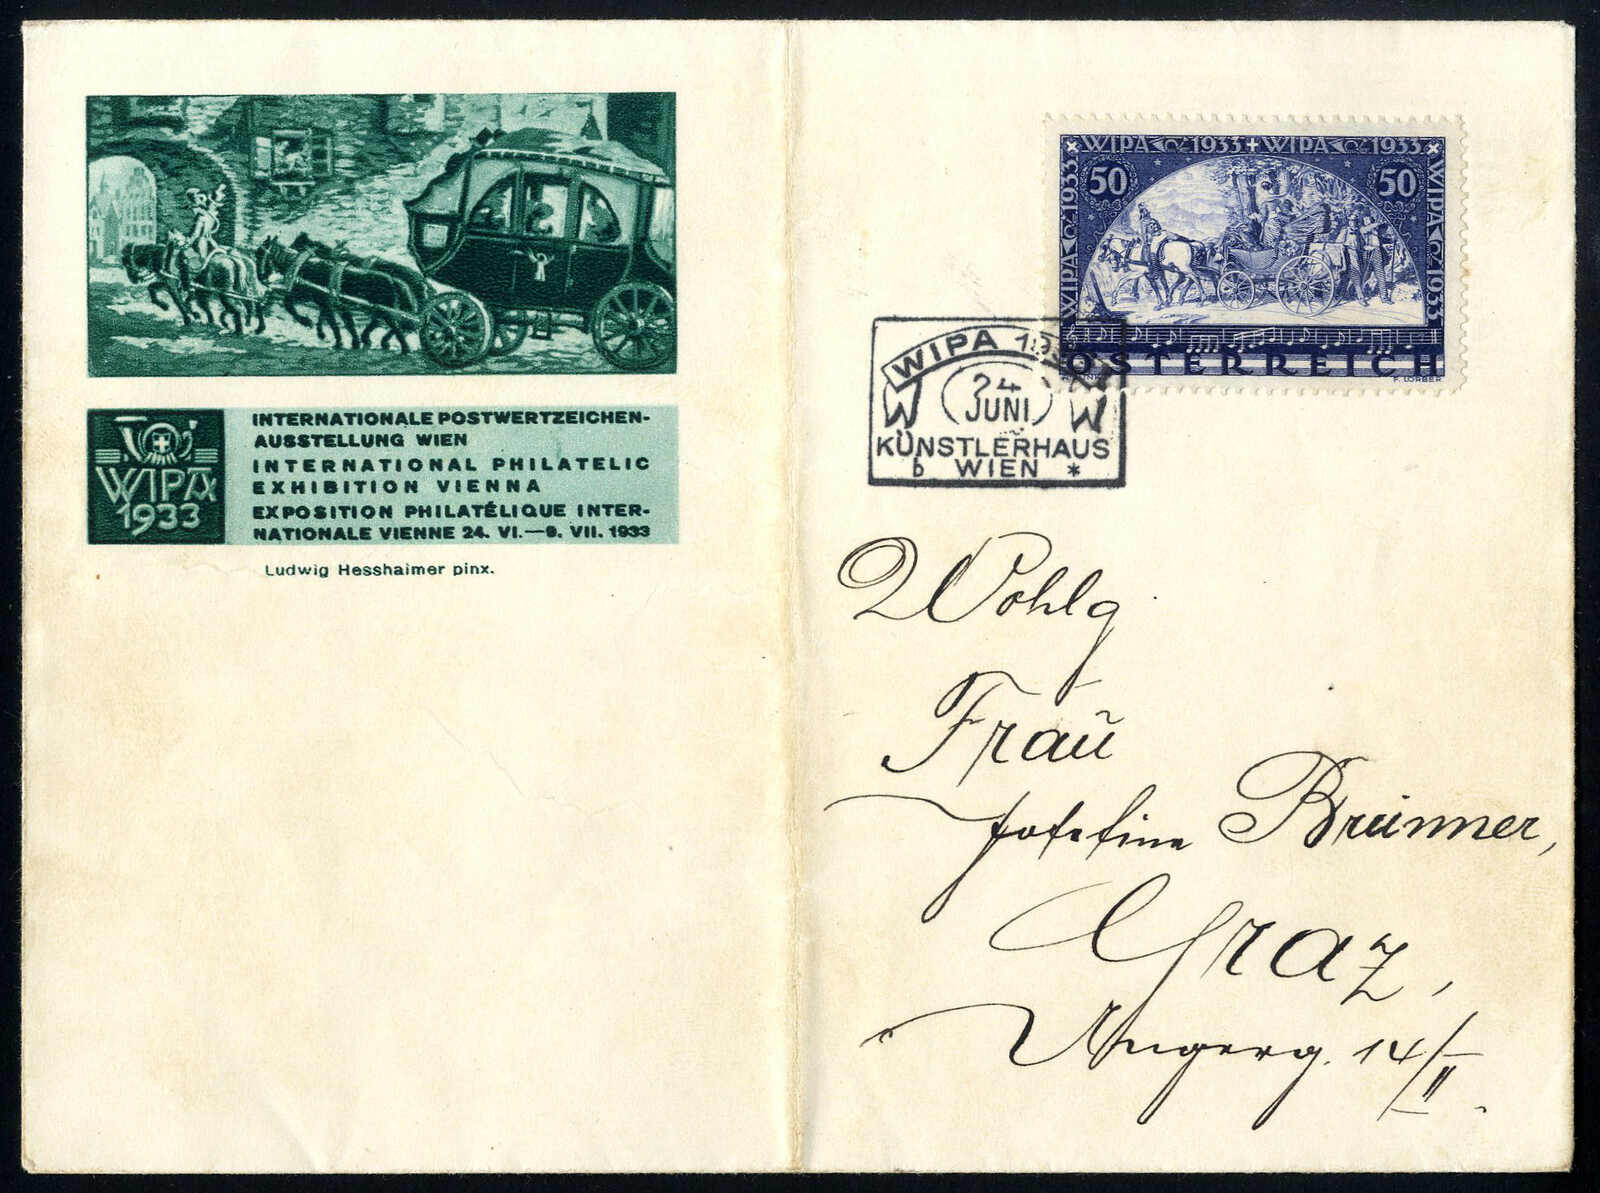 INTERNATIONALE POSTWERTZEICHEN-
AUSSTELLUNG WIEN
INTERNATIONAL PHILATELIC
EXHIBITION VIENNA
EXPOSITION PHILATÉLIQUE INTER-
NATIONALE VIENNE 24. VI.—9. VII. 1933
WIPA
1933
Ludwig Hesshaimer pinx.
WIPA 1933 + WIPA 1933
WIPA 1933
WIPA 1933
50
50
ÖSTERREICH
F. LORBER
WIPA 1933
24
JUNI
KÜNSTLERHAUS
b WIEN *
Wohlg
Frau
Josefine Brunner,
Graz,
14/II.